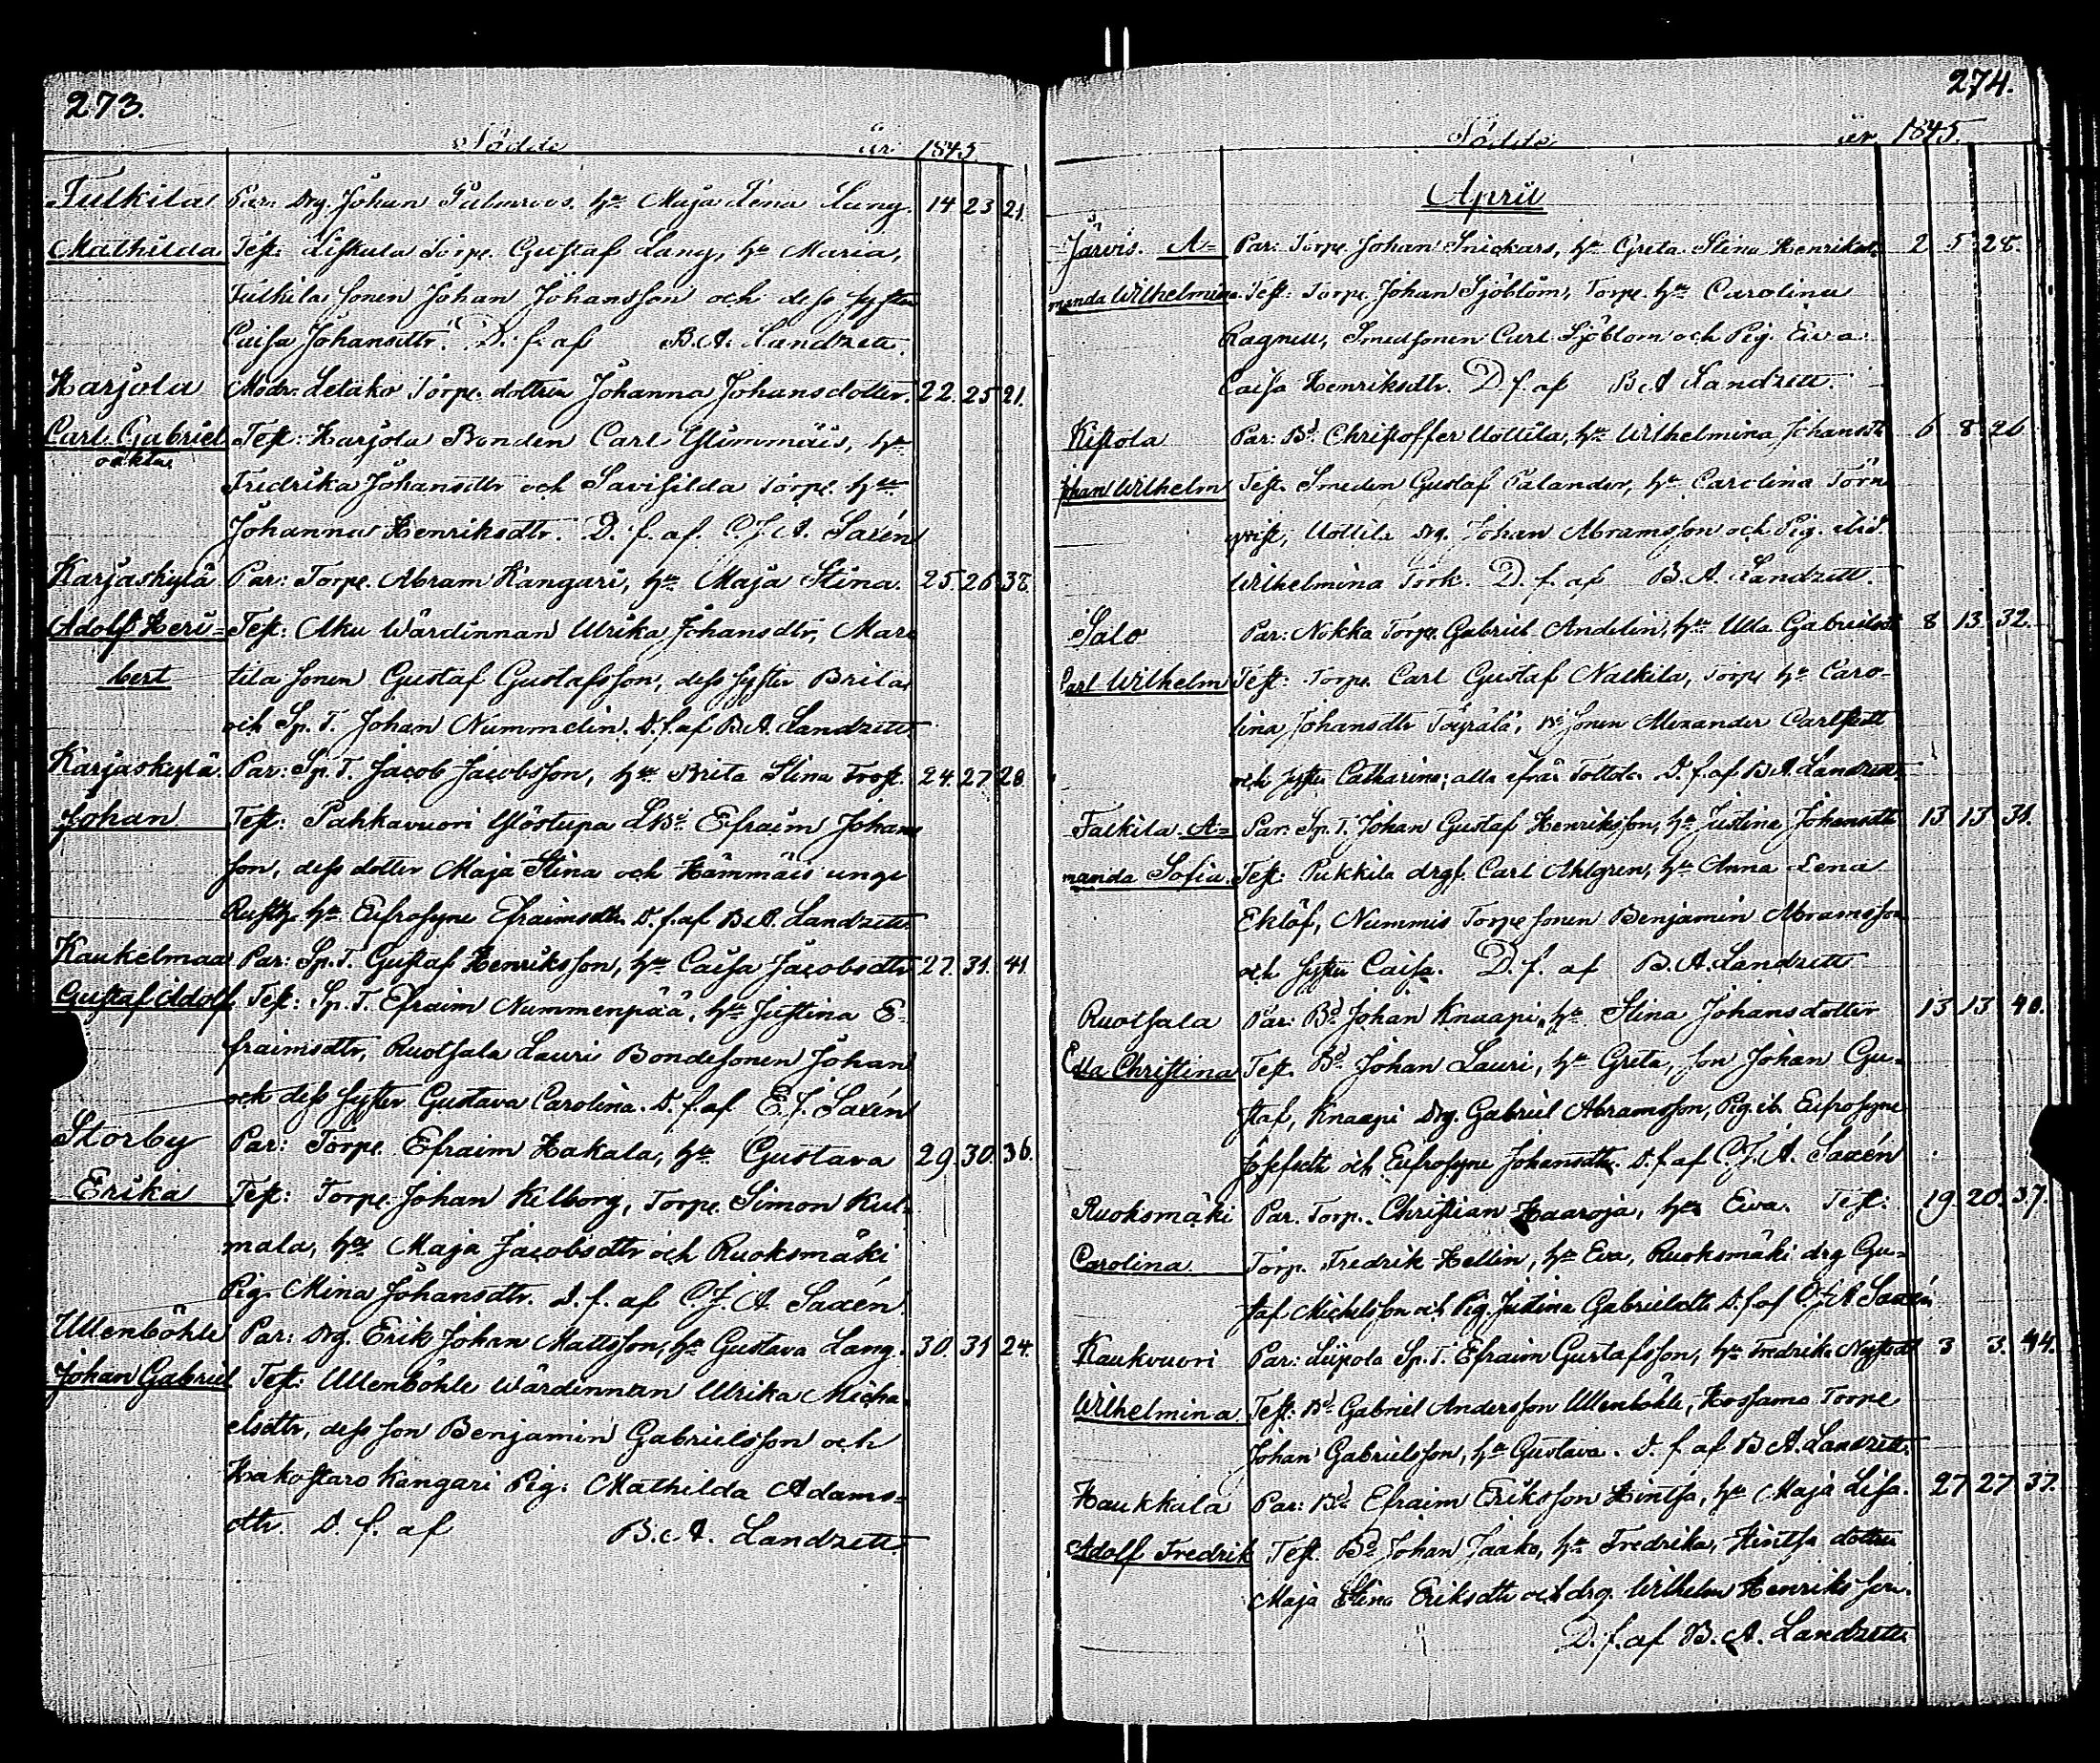 273.
Födde år 1845
Tulkila Par. Drg. Johan Palmroos. h:u Maja Lena Lang. 14 23 21.
Mathilda Test: Liskula Torpe. Gustaf Lang, h:u Maria,
Tulkila sonen Johan Johansson och dess syster
Caisa Johansdtr. D. f. af B. A. Landzett.
Harjola Modr. Letako Torpe. dottren Johanna Johansdotter. 22. 25 21.
Carl Gabriel Test: Harjola Bonden Carl Ylimmäis, h:u
oäkta
Fredrika Johansdtr och Savisilda Torpe. h:u
Johanna Henriksdtr. D. f. af. C. J. A. Saxén
Karjaskylä Par: Torpe. Abram Kangari, h:u Maja Stina. 25. 26 38.
Adolf Heri- Test: Aku Wärdinnan Ulrika Johansdtr, Mar
bert tila sonen Gustaf Gustafsson, dess syster Brita
och Sp. T. Johan Nummelin. D. f. af B. A. Landzett
Karjaskylä Par: Sp. T. Jacob Jacobsson, h:u Brita Stina Trast. 24. 27. 28.
Johan Test: Pahkavuori Ylöstupa LBd Efraim Johans
son, dess dotter Maja Stina och Hämmäis unge
Rusth. h:u Eufrosyne Efraimsdtr. D. f. af B. A. Landzett
Kaukelmaa Par: Sp. T. Gustaf Henriksson, h:u Caisa Jacobsdtr 27. 31. 41
Gustaf Adolf Test: Sp. T. Efraim Nummenpää, h:u Justina E-
fraimsdtr, Ruotsala Lauri Bondesonen Johan
och dess syster Gustava Carolina. D. f. af E. J. Saxén
Storby Par: Torpe. Efraim Hakala, h:u Gustava 29. 30. 36.
Erika Test: Torpe. Johan Kilborg, Torpe. Simon Kul-
mala, h:u Maja Jacobsdtr och Ruoksmäki
Pig. Mina Johansdtr. D. f. af C. J. A. Saxén
Ullenböhle Par: Drg. Erik Johan Mattsson, h:u Gustava Lang. 30. 31 24.
Johan Gabriel Test: Ullenböhle Wärdinnan Ulrika Micha
elsdtr, dess son Benjamin Gabrielsson och
Hakostaro Kangari Pig. Mathilda Adams-
dtr. D. f. af B. A. Landzett
274.
Födde år 1845.
April
Järvis. A- Par: Torpe. Johan Snickars, h:u Greta Stina Henriksdtr. 2 5 28.
manda Wilhelmina. Test: Torpe. Johan Sjöblom, Torpe. h:u Carolina
Ragnell, Smedsonen Carl Sjöblom och Pig. Eva
Caisa Henriksdtr. D. f. af B A Landzett.
Kistola Par: Bd. Christoffer Uottila, h:u Wilhelmina Johansdtr 6 8 26
Johan Wilhelm Test. Smeden Gustaf Calander, h:u Carolina Törn
qvist, Uottila Drg. Johan Abramsson och Pig. ibid.
Wilhelmina Tork. D. f. af B. A. Landzett.
Salo Par: Nokka Torpe. Gabriel Andelin, h:u Ulla Gabrielsdtr 8 13 32.
Carl Wilhelm Test: Torpe. Carl Gustaf Nalkila, Torpe h:u Caro-
lina Johansdtr Töyrälä, Bd. sonen Alexander Carlstedt
och syster Catharina; alla ifrån Tottola. D. f. af B A Landzett
Talkila A- Par: Sp. T. Johan Gustaf Henriksson, h:u Justina Johansdtr 13 13 31.
manda Sofia. Test: Pukkila drgs. Carl Ahlgren, h:u Anna Lena
Eklöf, Nummis Torpe sonen Benjamin Abramsson
och syster Caisa. D. f. af B. A. Landzett
Ruotsala Par: Bd. Johan Knaapi, h:u Stina Johansdotter 13 13 40.
Edla Christina Test. Bd. Johan Lauri, h:u Greta, son Johan Gu-
staf, Knaapi Drg. Gabriel Abramsson, Pig. ib. Eufrosyne
Josefsdtr och Eufrosyne Johansdtr. D. f. af C. J. A. Saxén
Ruoksmäki Par. Torp. Christian Haaroja, h:u Ewa. Test: 19 20. 37.
Carolina Torp. Fredrik Hellin, h:u Eva, Ruoksmäki drg Gu-
staf Michelsson och Pig. Justina Gabrielsdtr D. f. af C. J. A Saxén
Kaukvuori Par: Liipola Sp. T. Efraim Gustafsson, h:u Fredrika Nystedt 3 3. 44.
Wilhelmina Test: Bd. Gabriel Andersson Ullenböhle, Hossama Torpe
Johan Gabrielsson, h:u Gustava. D. f. af B A. Landzett.
Haukkala Par: Bd. Efraim Eriksson Hintsa, h:u Maja Lisa. 27 27 37.
Adolf Fredrik Test. Bd. Johan Jaako, h:u Fredrika, Hintsa dotter
Maja Stina Eriksdtr och drg. Wilhelm Henriksson.
D. f. af B. A. Landzett